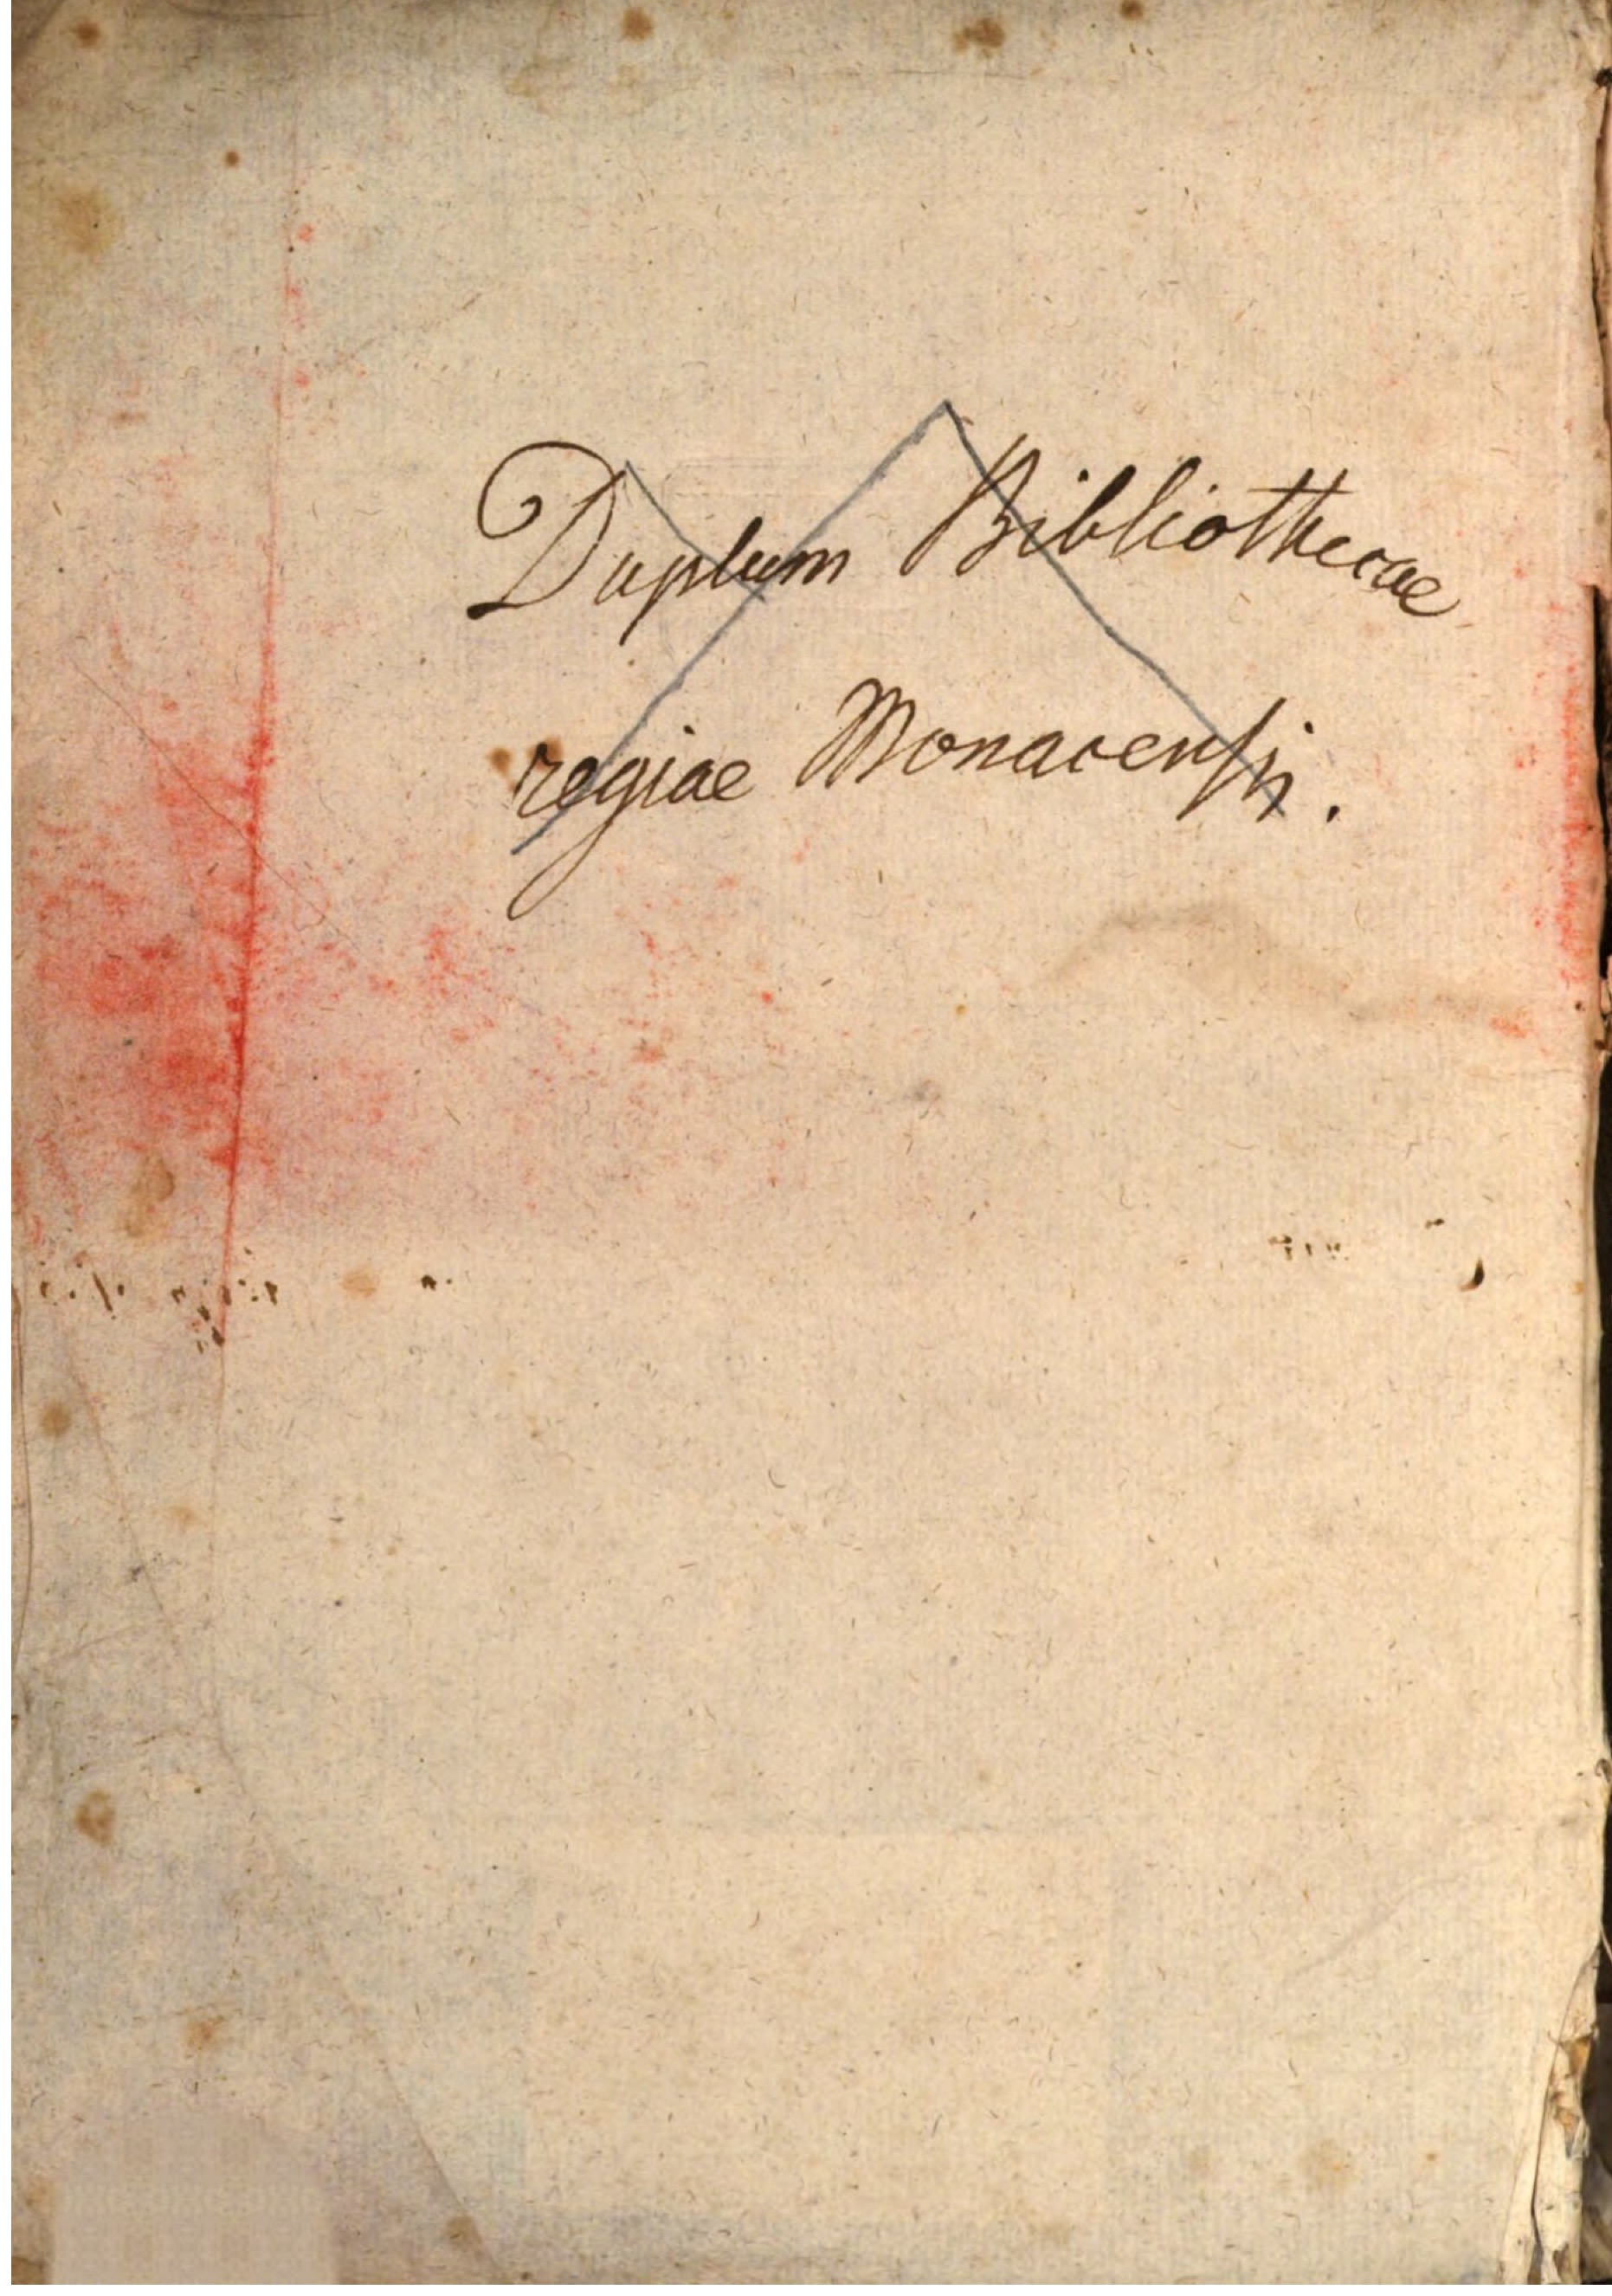 Duplum Bibliothecae
regiae Monacensis.